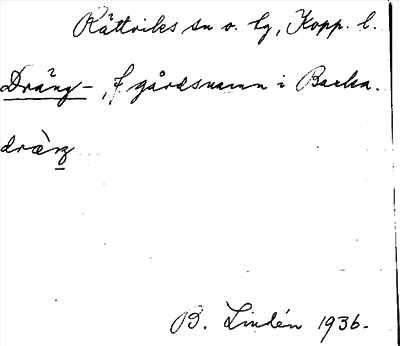 Rättviks sn o. hg, Kopp. l.
Dräng-, f. gårdsnamn i Backa.
dræ̀ŋ
B. Lindén 1936.